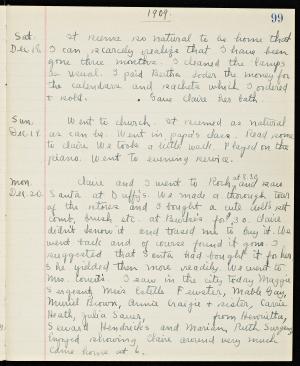 1909.
99
Sat. It seems so natural to be home that
Dec 18. I can scarcely realize that I have been
gone three months. I cleaned the lamps
as usual. I paid Bertha Soder the money for
the calendars and sachets which I ordered
& sold. Gave Claire her bath
Sun. Went to church. It seemed as natural
Dec. 19. as can be. Went in papa's class. Read some
to Claire. We took a little walk. Played on the
piano. Went to evening service.
Mon. Claire and I went to Roch. at 8.30 and saw
Dec. 20. Santa at Duffy's. We made a thorough tour
of the stores and I bought a cute doll's set
comb, brush etc. at for 30. Claire
didn't know it and teased me to buy it. We
went back and of course found it gone. I
suggested that Santa had bought it for her
& she yielded then more readily. We went to
Mrs. I saw in the city today Maggie
Sargeant, Miss Estelle Fewster, Mable Gay,
Muriel Brown, Annie Craigie & sister, Carrie
Heath, Julia Sauer, from Henrietta,
Seward Hendricks and Marian, Ruth
Enjoyed showing Claire around very much
Came home at 6.